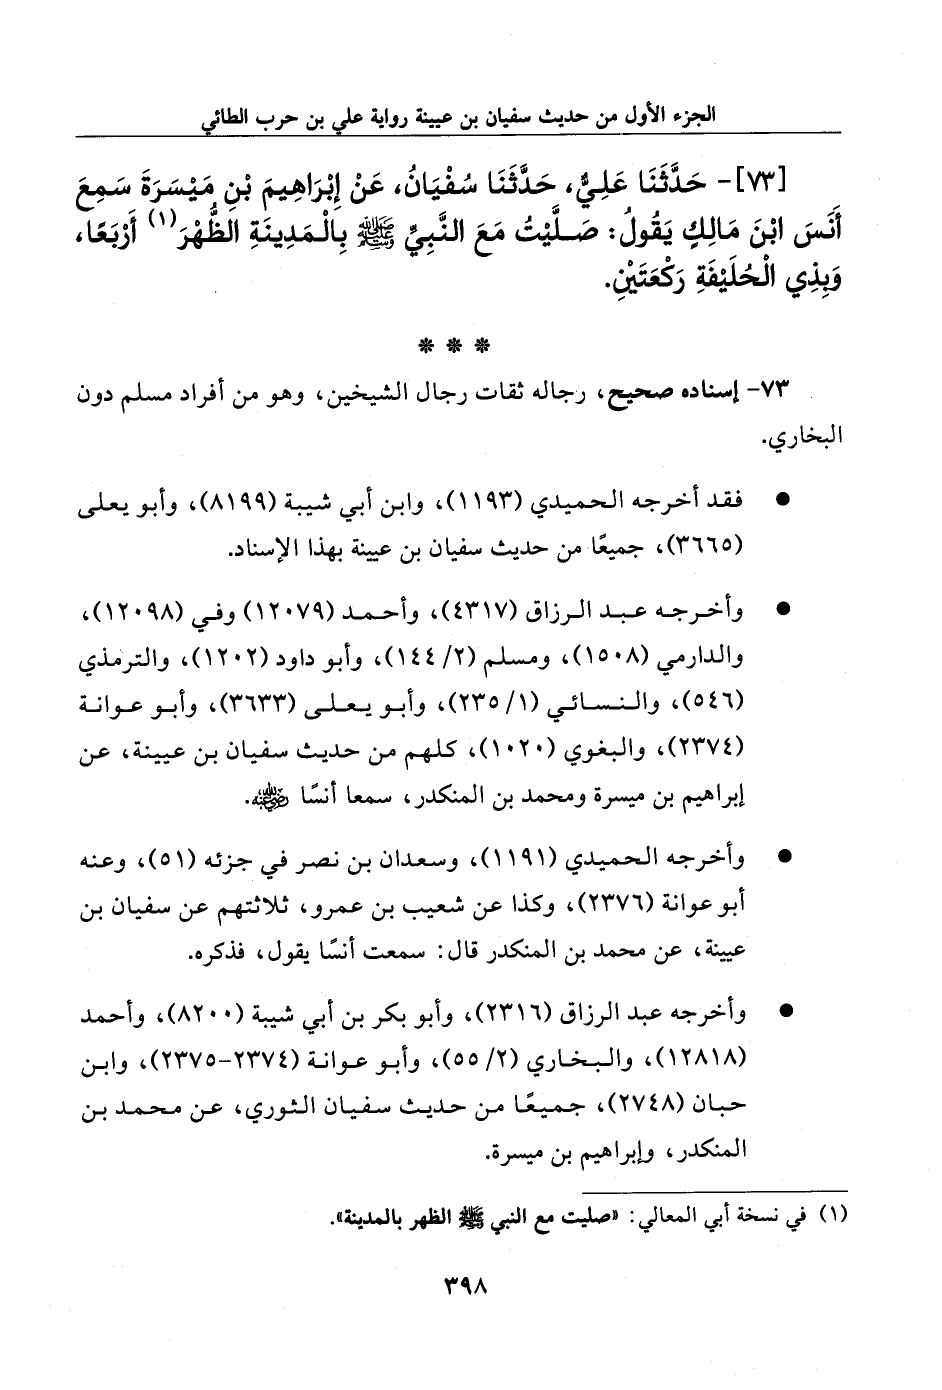 الجزء الأول من حديث سفيان بن عيينة رواية علي بن حرب الطائي
[٧٣]- حَدَّثَنَا عَلِيٌّ، حَدَّثَنَا سُفْيَانُ، عَنْ إِبْرَاهِيمَ بْنِ مَيْسَرَةَ سَمِعَ
أَنَسَ ابْنَ مَالِكٍ يَقُولُ: صَلَّيْتُ مَعَ النَّبِيِّ ﷺ بِالْمَدِينَةِ الظُّهْرَ(١) أَرْبَعًا،
وَبِذِي الْحُلَيْفَةِ رَكْعَتَيْنِ.
* * *
٧٣- إسناده صحيح، رجاله ثقات رجال الشيخين، وهو من أفراد مسلم دون
البخاري.
● فقد أخرجه الحميدي (١١٩٣)، وابن أبي شيبة (٨١٩٩)، وأبو يعلى
(٣٦٦٥)، جميعًا من حديث سفيان بن عيينة بهذا الإسناد.
● وأخرجه عبد الرزاق (٤٣١٧)، وأحمد (١٢٠٧٩) وفي (١٢٠٩٨)،
والدارمي (١٥٠٨)، ومسلم (٢/ ١٤٤)، وأبو داود (١٢٠٢)، والترمذي
(٥٤٦)، والنسائي (١/ ٢٣٥)، وأبو يعلى (٣٦٣٣)، وأبو عوانة
(٢٣٧٤)، والبغوي (١٠٢٠)، كلهم من حديث سفيان بن عيينة، عن
إبراهيم بن ميسرة ومحمد بن المنكدر، سمعا أنسًا رضي الله عنه.
● وأخرجه الحميدي (١١٩١)، وسعدان بن نصر في جزئه (٥١)، وعنه
أبو عوانة (٢٣٧٦)، وكذا عن شعيب بن عمرو، ثلاثتهم عن سفيان بن
عيينة، عن محمد بن المنكدر قال: سمعت أنسًا يقول، فذكره.
● وأخرجه عبد الرزاق (٢٣١٦)، وأبو بكر بن أبي شيبة (٨٢٠٠)، وأحمد
(١٢٨١٨)، والبخاري (٢/ ٥٥)، وأبو عوانة (٢٣٧٤-٢٣٧٥)، وابن
حبان (٢٧٤٨)، جميعًا من حديث سفيان الثوري، عن محمد بن
المنكدر، وإبراهيم بن ميسرة.
(١) في نسخة أبي المعالي: «صليت مع النبي ﷺ الظهر بالمدينة».
٣٩٨